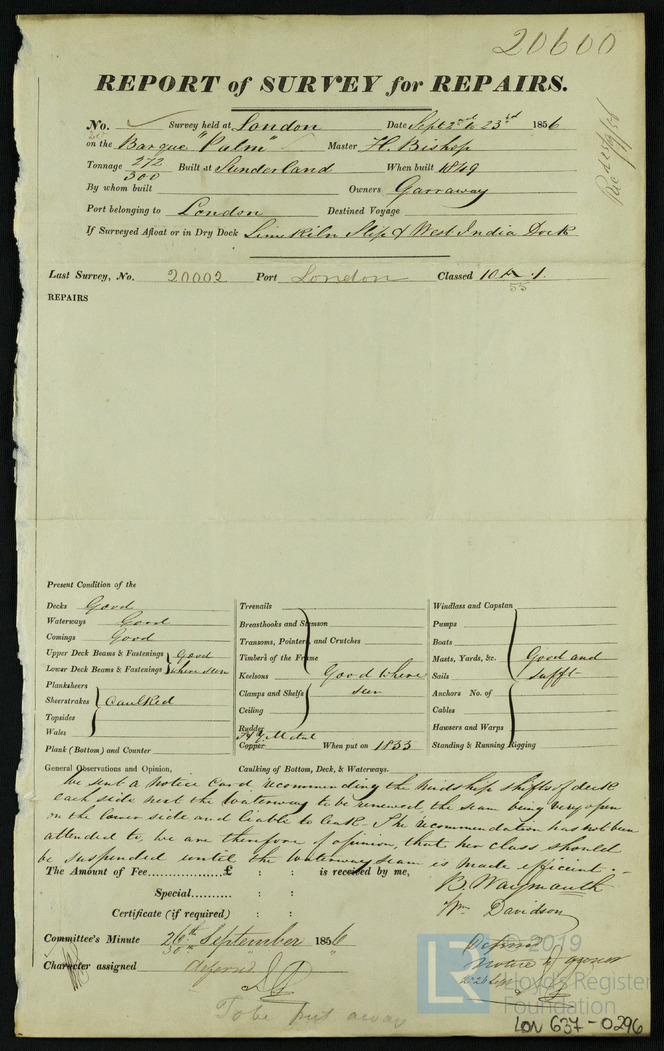 20600
REPORT of SURVEY for REPAIRS.
Recd 25/9/56
No. Survey held at London Date Sept 2nd to 23rd 1856
on the Barque "Palm" Master H. Bishop
Tonnage 272 Built at Sunderland When built 1849
300
By whom built Owners Garraway
Port belonging to London Destined Voyage
If Surveyed Afloat or in Dry Dock Lime Kiln Slip & West India Dock
Last Survey, No. 20002 Port London Classed 10 A 1
55
REPAIRS
Present Condition of the
Decks Good
Waterways Good
Comings Good
Upper Deck Beams & Fastenings Good
Lower Deck Beams & Fastenings where seen
Planksheers
Sheerstrakes Caulked
Topsides
Wales
Plank (Bottom) and Counter
Treenails
Breasthooks and Stemson
Transoms, Pointers, and Crutches
Timbers of the Frame
Keelsons Good where
Clamps and Shelfs seen
Ceiling
Rudder
Y. Metal
Copper When put on 1855
Windlass and Capstan
Pumps
Boats
Masts, Yards, &c. Good and
Sails sufft
Anchors No. of
Cables
Hawsers and Warps
Standing & Running Rigging
General Observations and Opinion, Caulking of Bottom, Deck, & Waterways.
We sent a notice card, recommending the midship shifts of deck
each side next the Waterway to be renewed the seam being very open
on the lower side and liable to leak. The recommendation has not been
attended to, we are therefore of opinion, that her class should
be suspended until the Waterway seam is made efficient.
The Amount of Fee £ : : is received by me,
B. Waymouth
Special : :
Wm Davidson
Certificate (if required) : :
Committee's Minute 26th September 1856
30th " "
Character assigned deferred
deferred
notice to owner
26 Sep
To be put away
© 2019
LR Lloyd's Register
Foundation
LON 637-0296